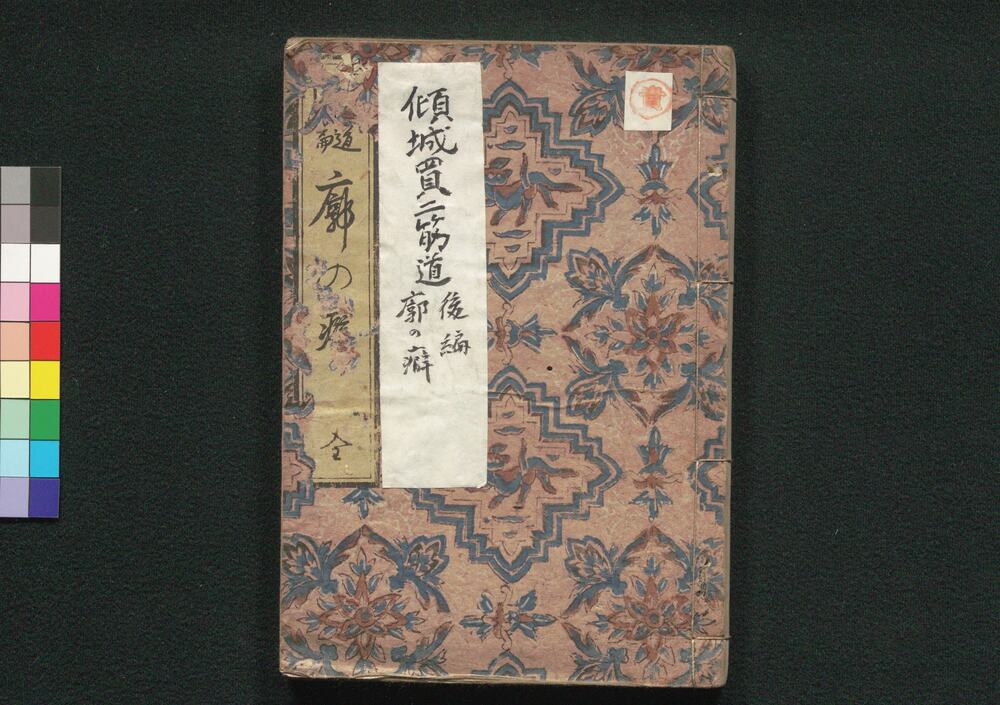 傾城買二筋道
後編
廓の癖
道
編
廓の癖
全